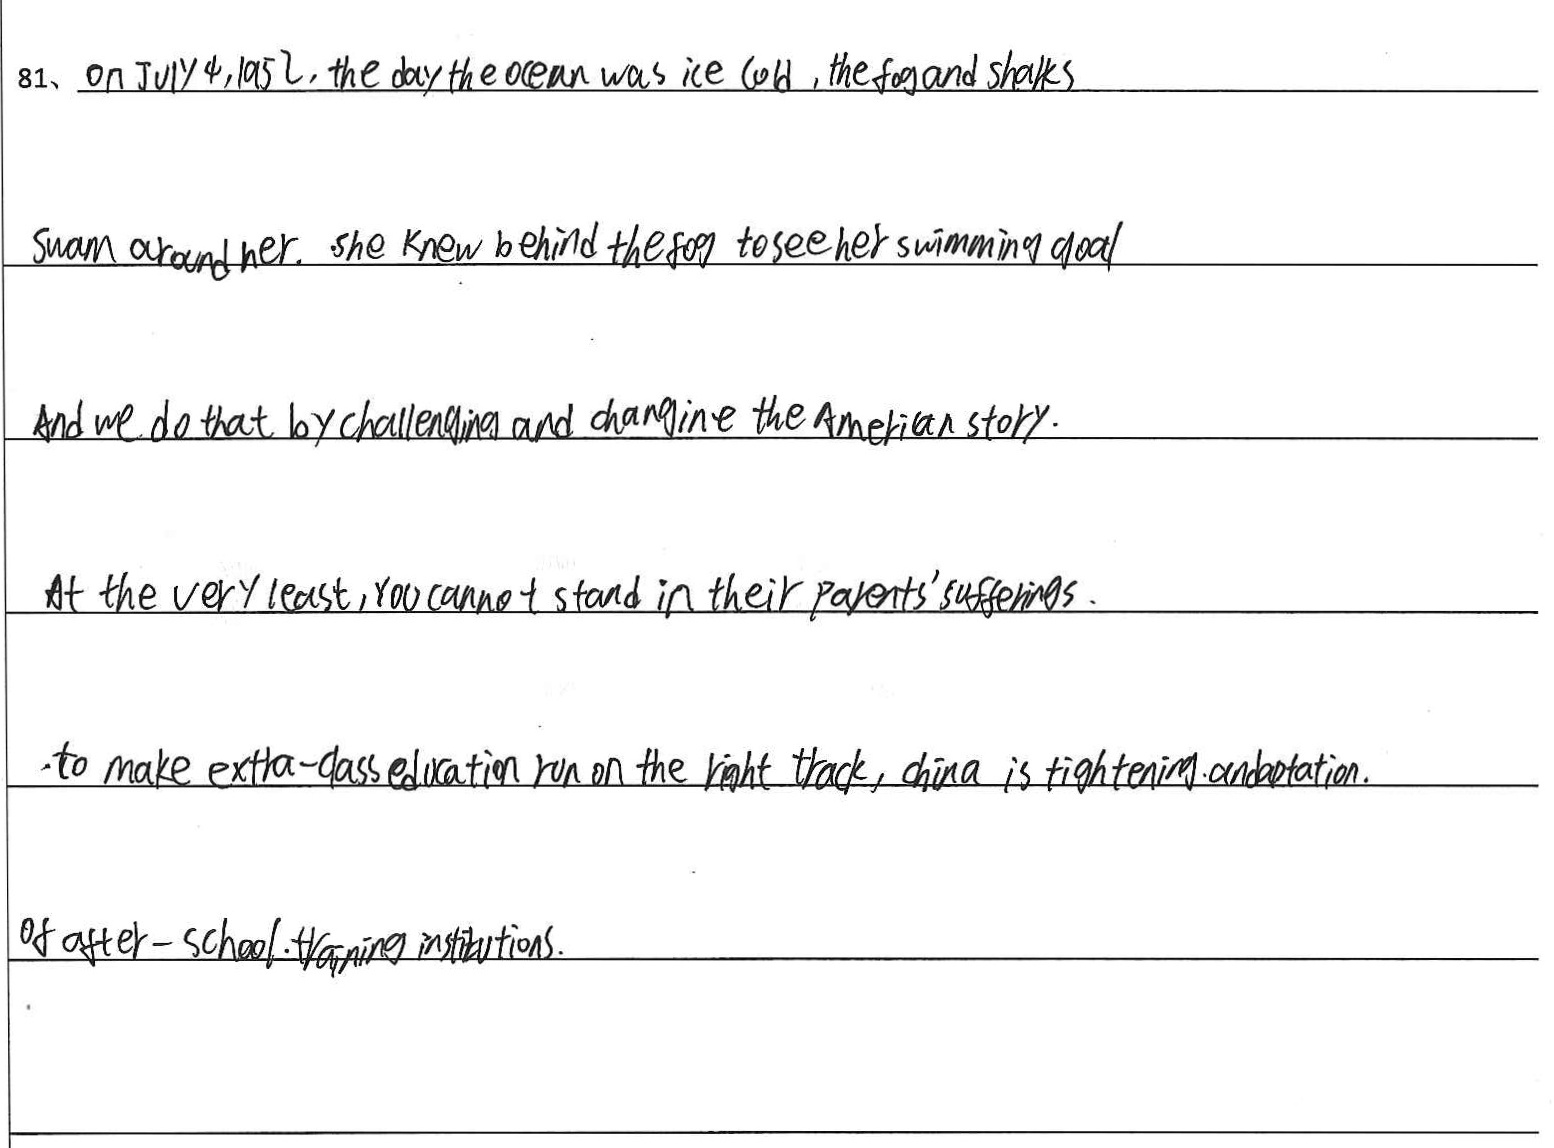 81、on JUIY 4,1952, the day the ocean was ice cold, the fog and sharks
swam around her. she knew behind the fog to see her swimming goal
And we do that by challenging and changine the American story.
At the very least, you cannot stand in their parents' sufferings.
to make extra-class education run on the right track, china is tightening.
of after-school training institutions.